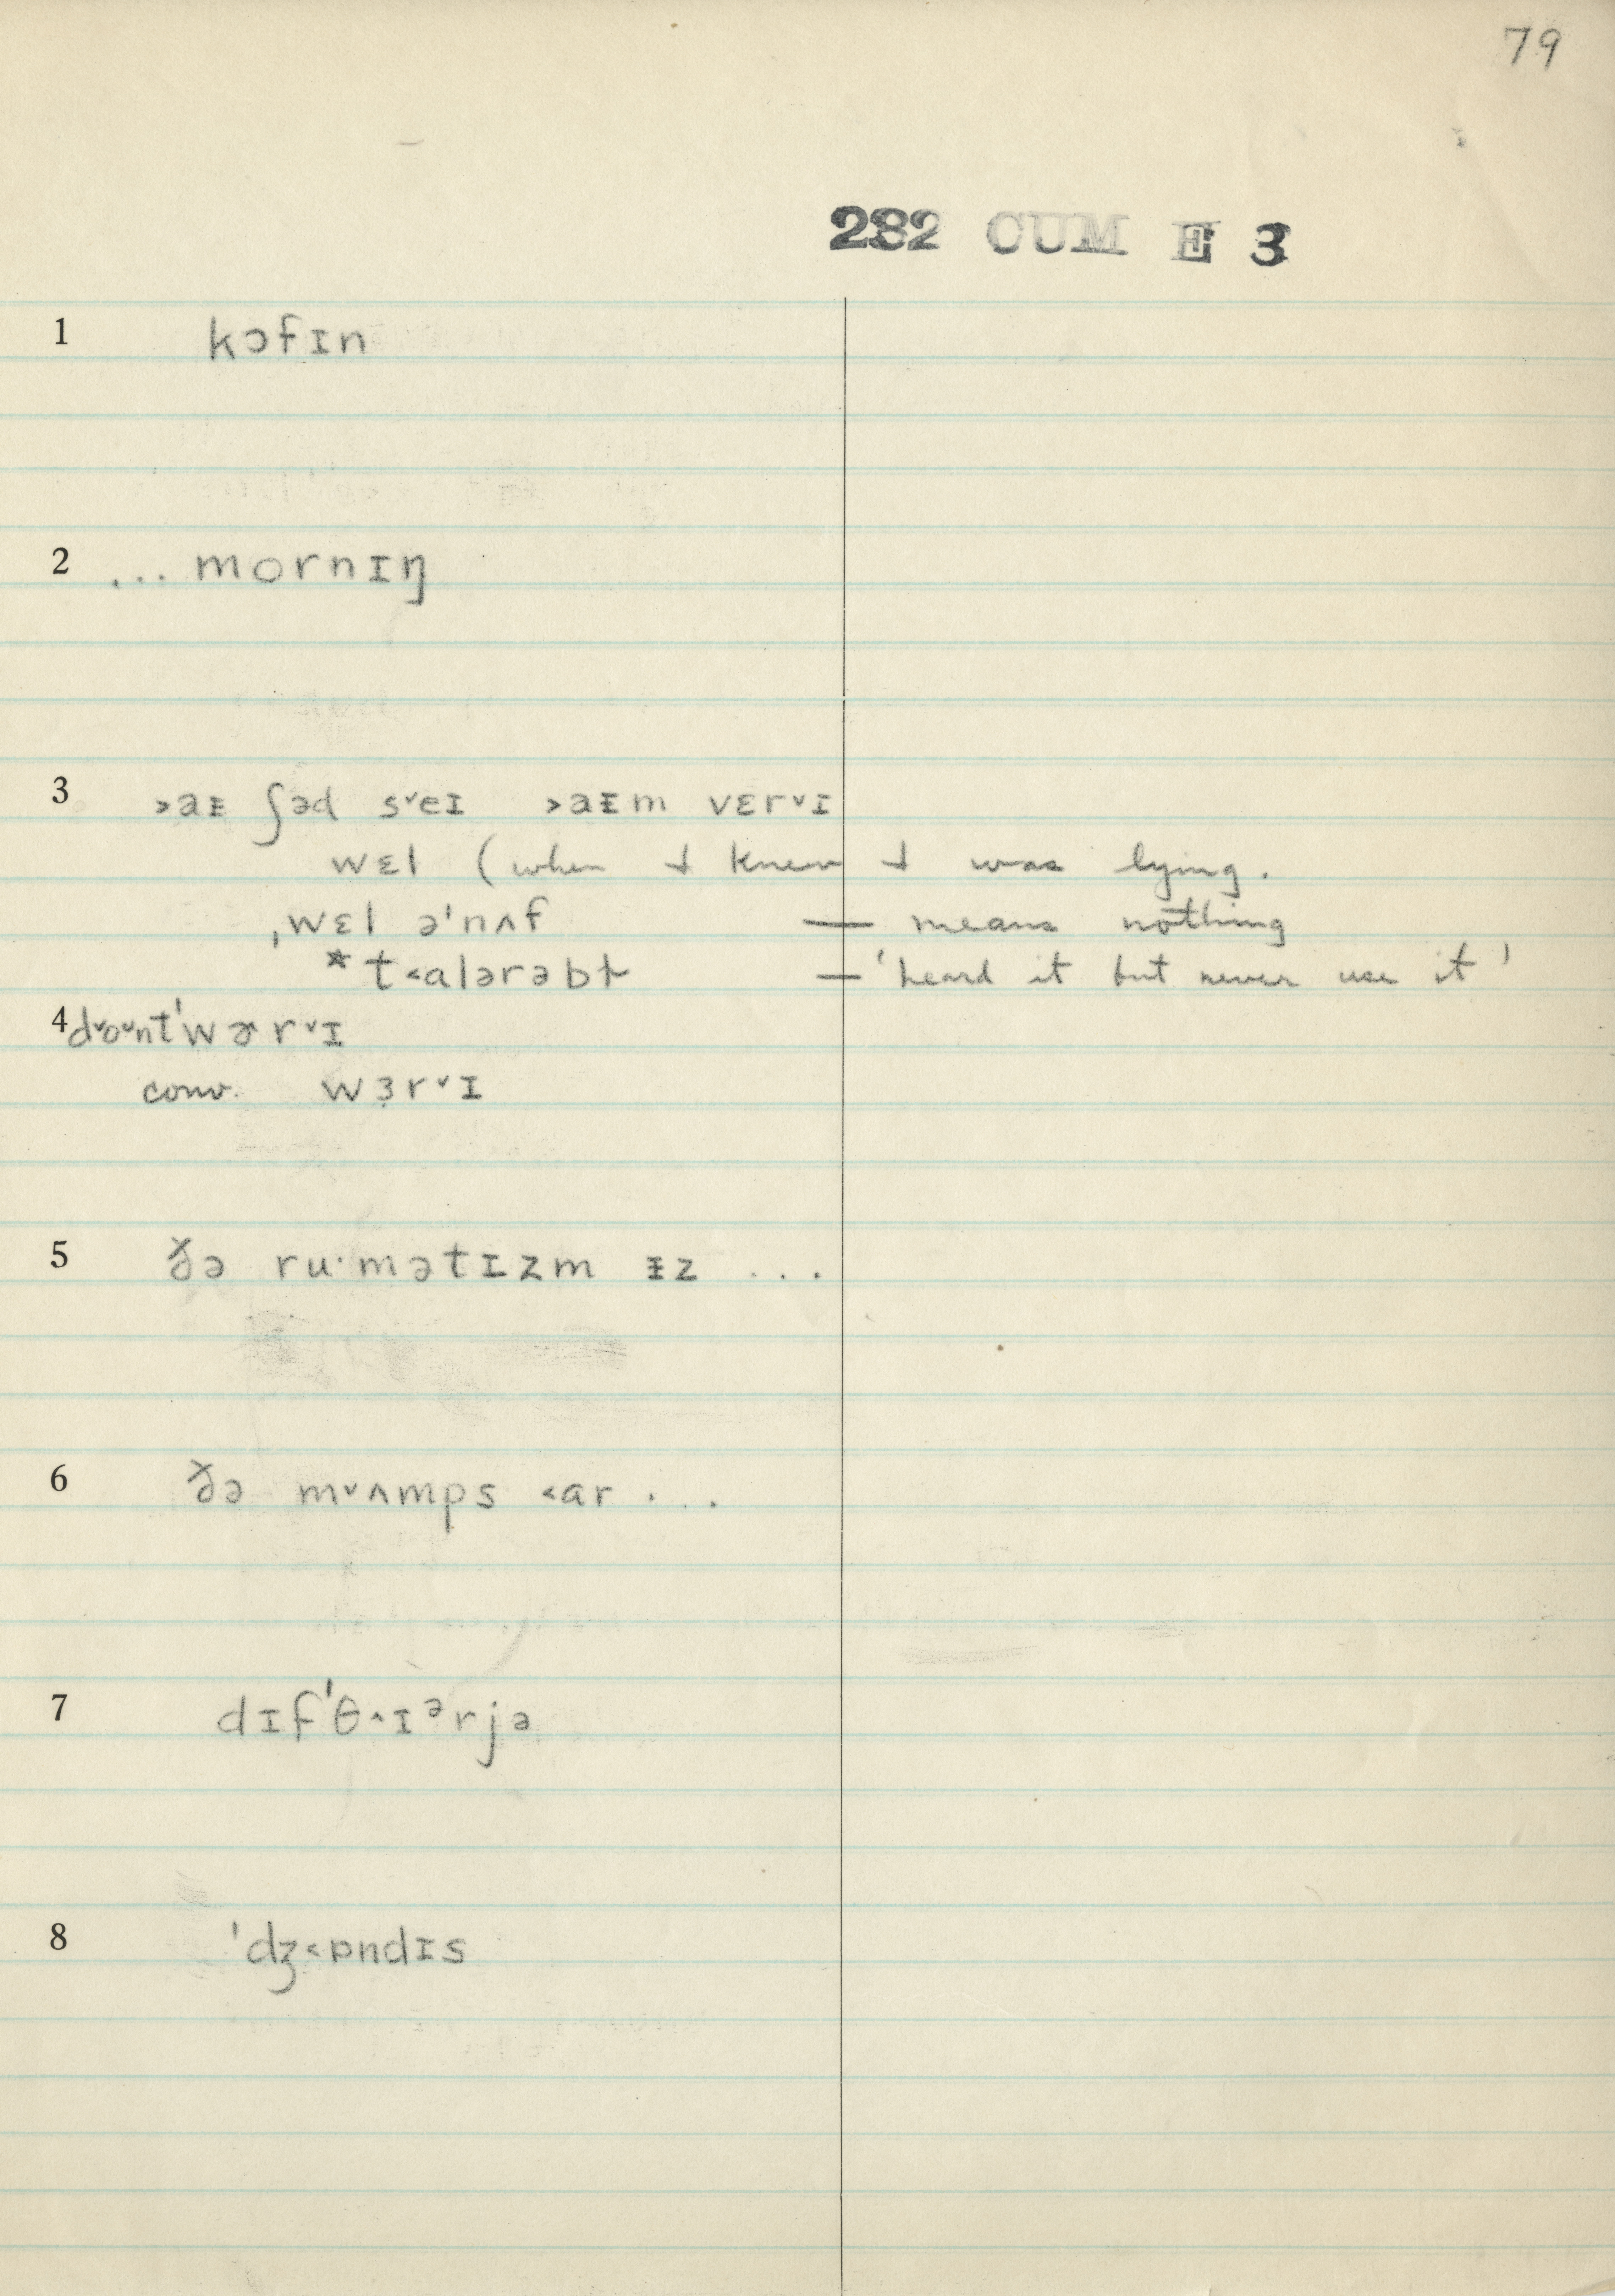 79
282 CUM E 3
1 kɔfɪn
2 ... mornɪŋ
3 ˃aᵻ ʃəd s˅eɪ ˃aᵻm vɛr˅ɪ
wɛl (when I knew I was lying.
ˌwɛl əˈnʌf — means nothing
*t˂alərəbɫ — 'heard it but never use it'
4 d˅o˅ntˈwɚr˅ɪ
conv. wɜr˅ɪ
5 ðə ru·mətɪzm ᵻz ...
6 ðə m˅ʌmps ˂ar ...
7 dɪfˈθ˄ɪᵊrjə
8 ˈdʒ˂ɒndɪs